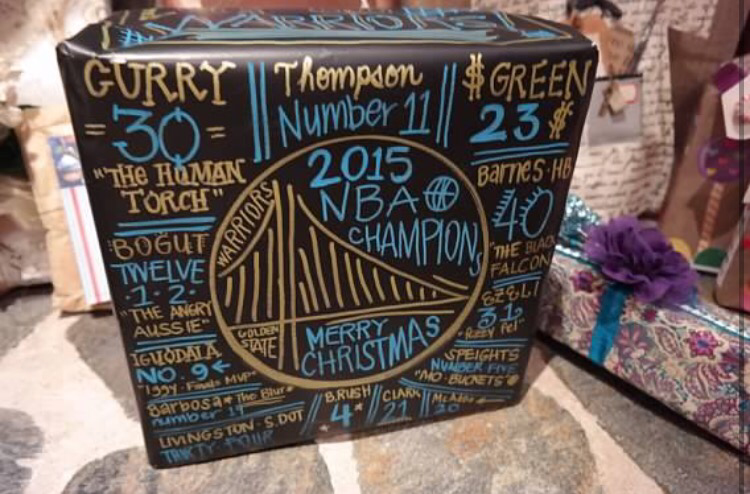 WARRIORS
CURRY
=30=
"THE HUMAN
TORCH"
BOGUT
TWELVE
·1·2·
"THE ANGRY
AUSSIE"
IGUODALA
NO. 9
"Iggy·Finals MVP"
Barbosa * The Blur *
number 19
LIVINGSTON·S.DOT
THIRTY-FOUR
Thompson
Number 11
2015
NBA
CHAMPIONS
WARRIORS
GOLDEN
STATE
MERRY
CHRISTMAS
$ GREEN
23 $
Barnes·HB
40
"THE BLACK
FALCON"
EZELI
31
SPEIGHTS
NUMBER FIVE
"MO·BUCKETS"
B.RUSH
4
CLARK
21
McAdoo
20